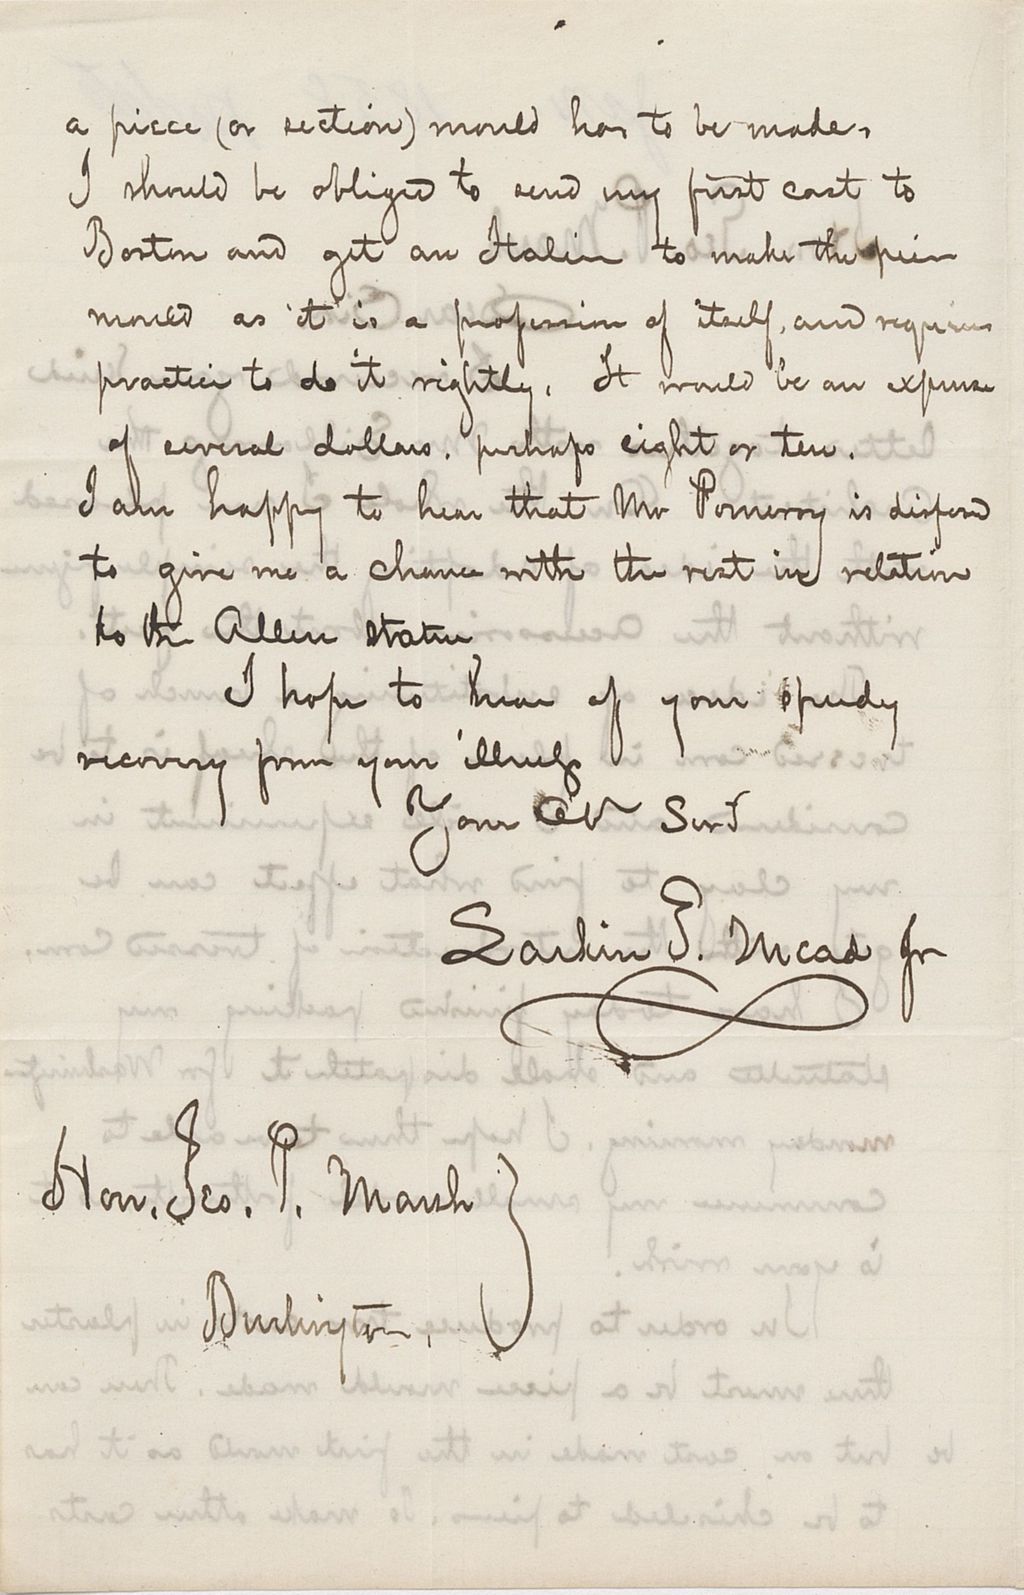 a piece (or section) mould has to be made.
I should be obliged to send my first cast to
Boston and get an Italien to make the piece
mould as it is a profession of itself, and requires
practice to do it rightly. It would be an expense
of several dollars. perhaps eight or ten.
I am happy to hear that Mr Pomeroy is disposed
to give me a chance with the rest in relation
to the Allen statue
I hope to hear of your speedy
recovery from your illness
Your Ob Servt
Larkin G. Mead Jr
Hon. Geo. P. Marsh
Burlington.